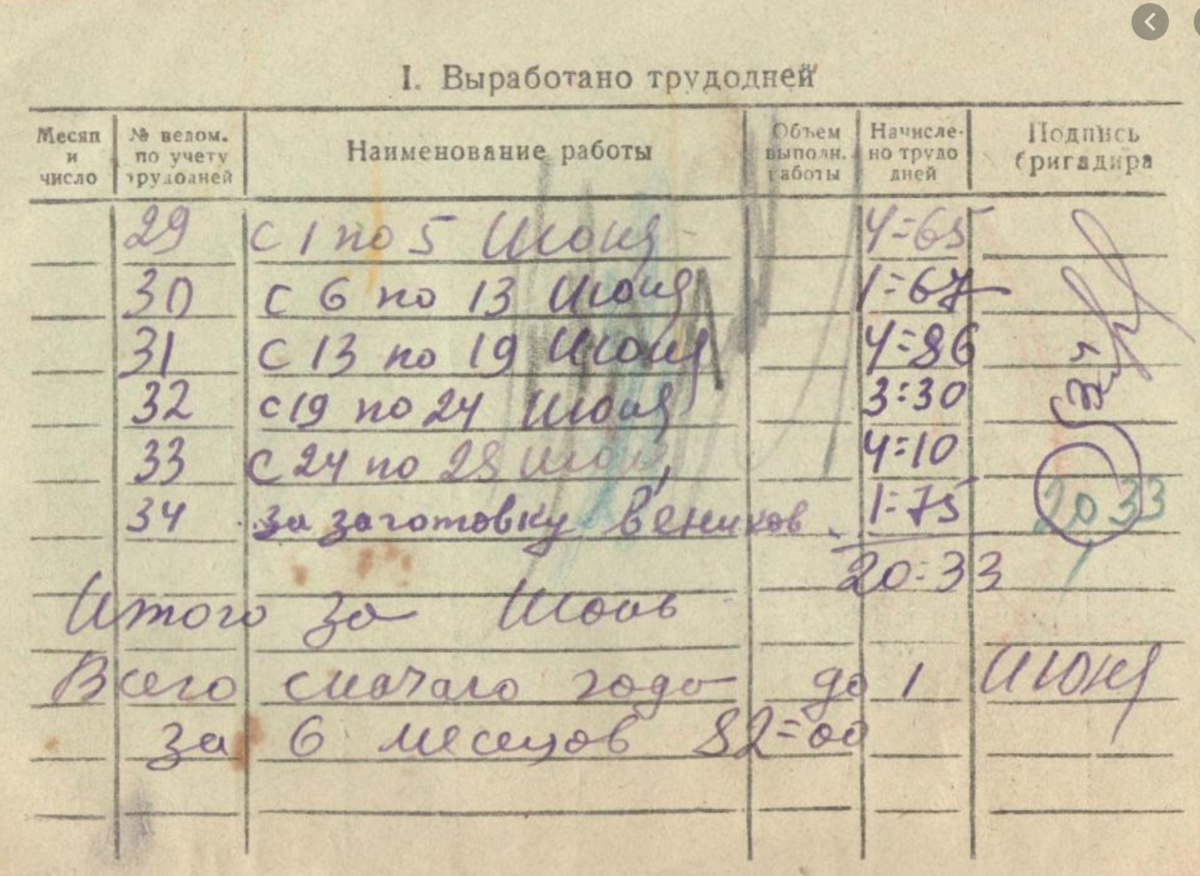 I. Выработано трудодней
Месяц и число | № ведом. по учету трудодней | Наименование работы | Объем выполн. работы | Начислено трудодней | Подпись бригадира
29 с 1 по 5 Июня 4=65
30 с 6 по 13 Июня 1=67
31 с 13 по 19 Июня 4=86
32 с 19 по 24 Июня 3=30
33 с 24 по 28 Июня 4=10
34 за заготовку веников 1=75
20 33
20=33
Итого за Июнь
Всего сначало года до 1 Июня
за 6 месецов 82=00